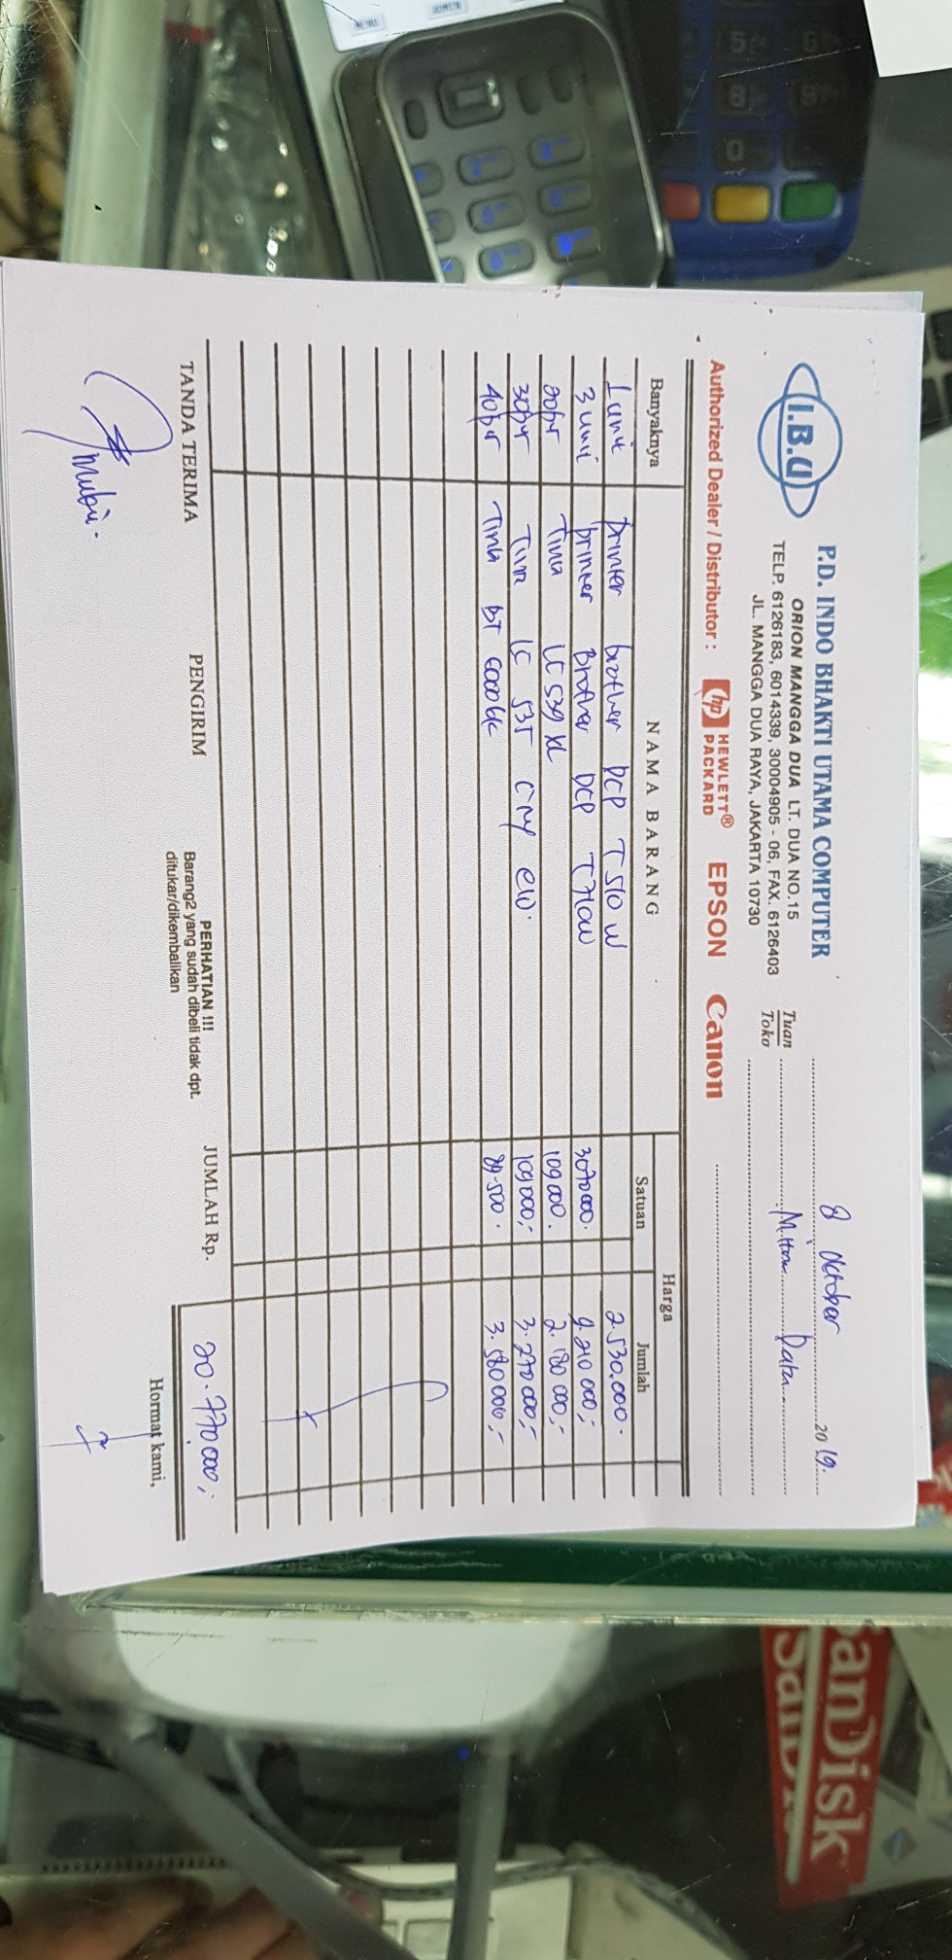 I.B.U
P.D. INDO BHAKTI UTAMA COMPUTER
ORION MANGGA DUA LT. DUA NO.15
TELP. 6126183, 6014339, 30004905 - 06, FAX. 6126403
JL. MANGGA DUA RAYA, JAKARTA 10730
8 October 2019.
Tuan
Toko
Mitra Data
Authorized Dealer / Distributor : hp HEWLETT® PACKARD EPSON Canon
Banyaknya NAMA BARANG Harga
Satuan Jumlah
1 unit printer brother DCP T510 W 2.530.000.
3 unit printer Brother DCP T710W 3070000. 9.210 000,-
20 pr Tinta LC 539 XL 109 000. 2.180 000,-
30 pr Tinta LC 535 C M Y @10. 109 000,- 3.270 000,-
40 pr Tinta BT 6000 BK 89.500. 3.580 000,-
TANDA TERIMA PENGIRIM PERHATIAN !!! JUMLAH Rp. 20.770.000,-
Barang2 yang sudah dibeli tidak dpt.
ditukar/dikembalikan
Hormat kami,
Mubin.
SanDisk
5
6
8
9
0